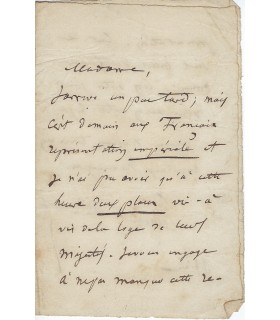 Madame,
J'arrive un peu tard ; mais
c'est demain aux Français
représentation impériale et
je n'ai pu avoir qu'à cette
heure deux places vis-à
vis de la loge de leurs
Majestés. Je vous engage
à ne pas manquer cette re-